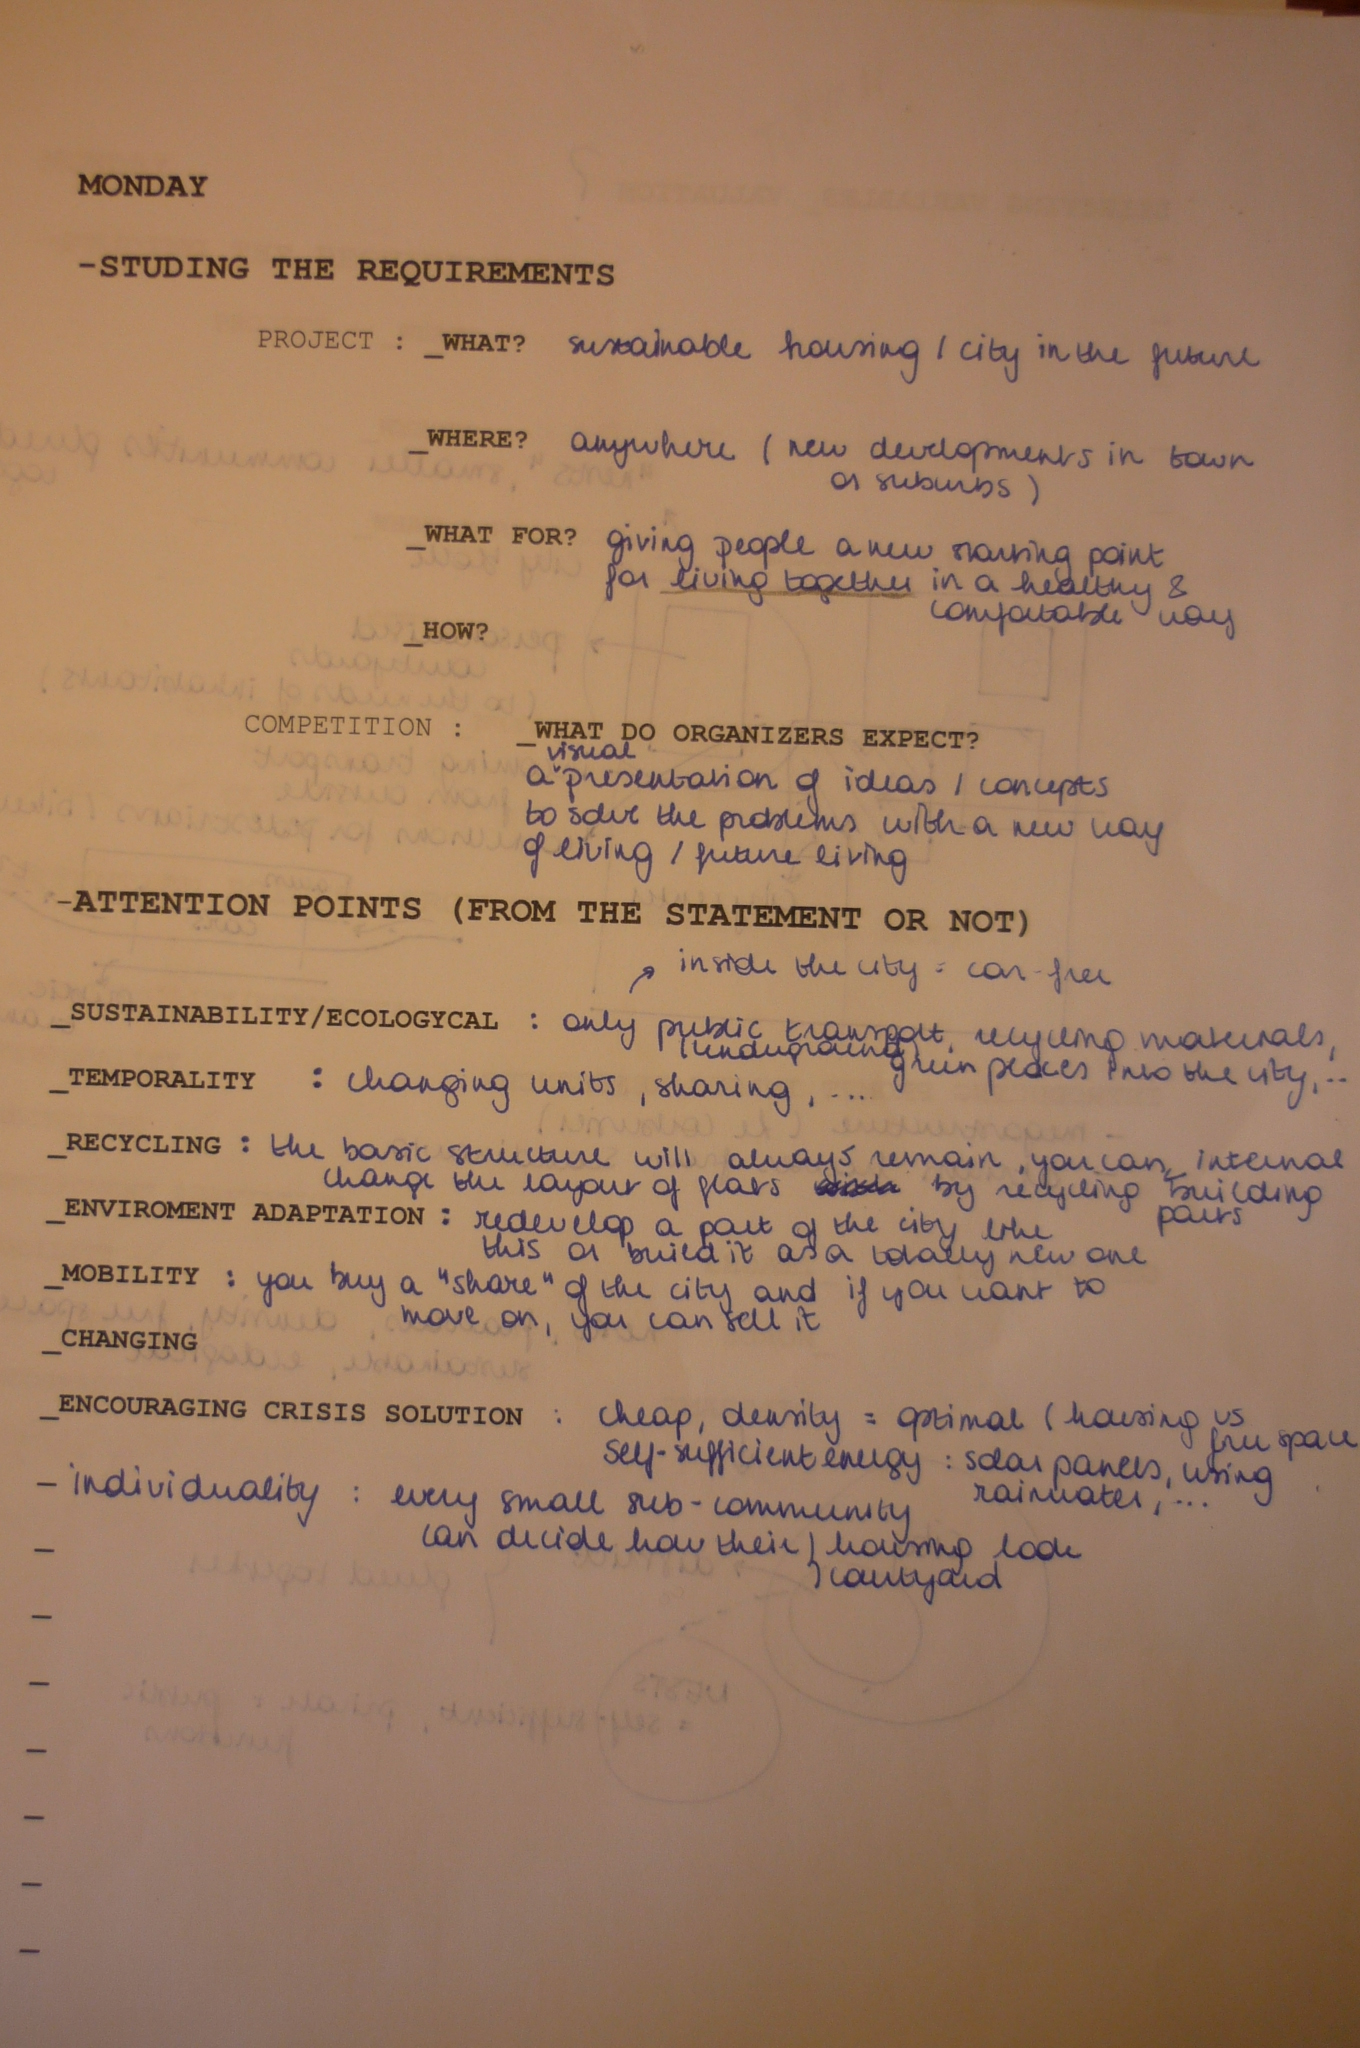 MONDAY
-STUDING THE REQUIREMENTS
PROJECT : _WHAT? sustainable housing / city in the future
_WHERE? anywhere ( new developments in town
or suburbs )
_WHAT FOR? giving people a new starting point
for living together in a healthy &
comfortable way
_HOW?
COMPETITION : _WHAT DO ORGANIZERS EXPECT?
visual
a presentation of ideas / concepts
to solve the problems with a new way
of living / future living
-ATTENTION POINTS (FROM THE STATEMENT OR NOT)
inside the city = car-free
_SUSTAINABILITY/ECOLOGYCAL : only public transport, recycling materials,
(underground) green places into the city, ..
_TEMPORALITY : changing units, sharing, ...
_RECYCLING : the basic structure will always remain, you can internal
change the layout of flats by recycling building
parts
_ENVIROMENT ADAPTATION : redevelop a part of the city like
this or build it as a totally new one
_MOBILITY : you buy a "share" of the city and if you want to
move on, you can sell it
_CHANGING
_ENCOURAGING CRISIS SOLUTION : cheap, density = optimal ( housing vs
free space
self-sufficient energy : solar panels, using
rainwater, ...
- individuality : every small sub-community
can decide how their housing look
courtyard